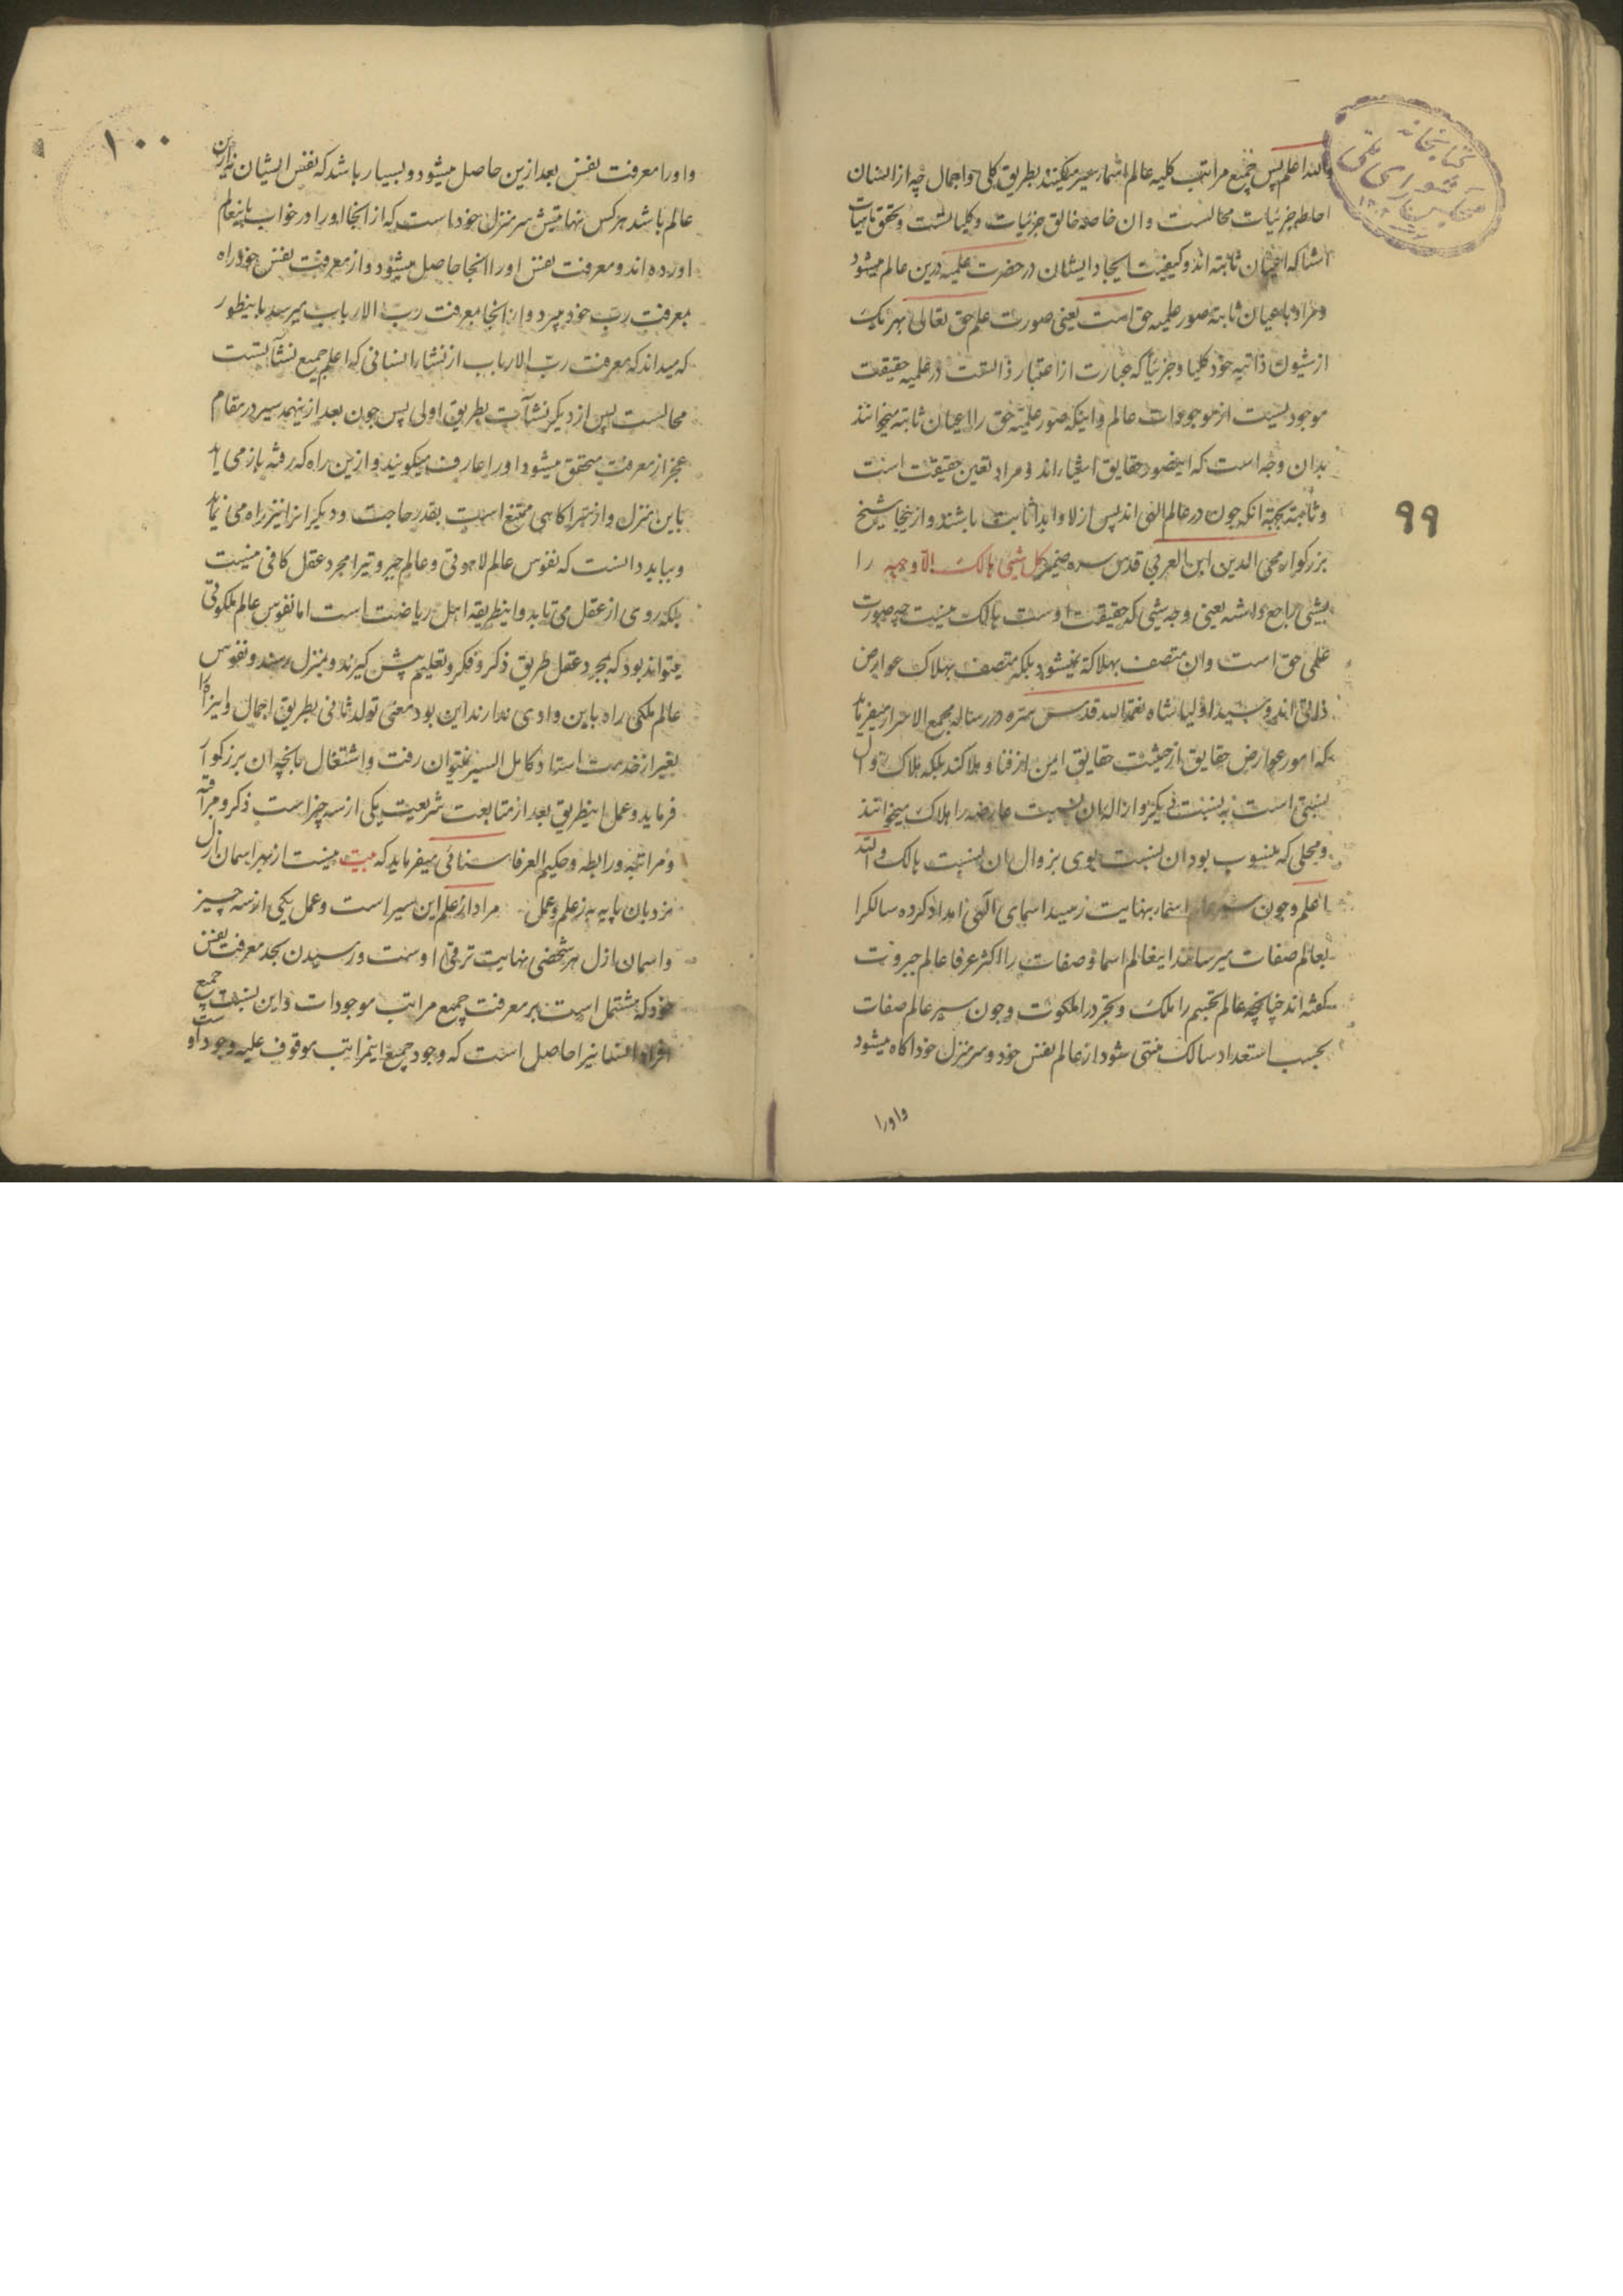 والله اعلم پس جمیع مراتب کلیه عالم اسما سیر میکند بطریق کلی و اجمال چه از انسان
احاطه جزئیات محالست و ان خاصه خالق جزئیات و کلیاتست و تحقق ماهیات
اشیا که اعیان ثابته اند و کیفیت ایجاد ایشان در حضرت علمیه درین عالم میشود
و مراد باعیان ثابته صور علمیه حق است یعنی صورت علم حق تعالی بهر یک
از شیون ذاتیه خود کلیا و جزئیا که عبارت از اعتبار ذاتست در علمیه حقیقت
موجودیست از موجودات عالم و اینکه صور علمیه حق را اعیان ثابته میخوانند
بدان وجه است که اینصور حقایق اشیااند و مراد تعین حقیقت است
و ثابته بجهة انکه چون در عالم الهی اند پس ازلا و ابدا ثابت باشند و از ینجا شیخ
بزرکوار محی الدین ابن العربی قدس سره ضمیر کل شیئی هالک الا وجهه را
بشیئی راجع داشته یعنی وجه شیئی که حقیقت اوست هالک نیست چه صورت
علمی حق است و ان متصف بهلاکة نمیشود بلکه متصف بهلاک عوارض
ذاتی اند و سید اولیا شاه نعمة الله قدس سره در رساله مجمع الاسرار میفرماید
که امور عوارض حقایق از حیثیت حقایق امین از فنا و هلاکند بلکه هلاک و زوال
نسبتی است به نسبت دیکر و ازاله ان نسبت عارضه را هلاک میخوانند
و محلی که منسوب بود ان نسبت بوی بزوال ان نسبت هالک والله
اعلم و چون سیر عالم اسما بنهایت رسید اسمای الهی امداد کرده سالکرا
بعالم صفات میرسانند اینعالم اسما و صفات را اکثر عرفا عالم جبروت
کفته اند چنانچه عالم تجسم را ملک و تجرد را ملکوت و چون سیر عالم صفات
بحسب استعداد سالک منتهی شود از عالم نفس خود و سرمنزل خود اکاه میشود
و اورا
۹۹
کتابخانه
مجلس شورای ملی
۱۰۰
و اورا معرفت نفس بعد ازین حاصل میشود و بسیار باشد که نفس ایشان نیز ازین
عالم باشد هر کس نهایتش سر منزل خود است که از انجا اورا در خواب باینعالم
اورده اند و معرفت نفس اورا انجا حاصل میشود و از معرفت نفس خود راه
بمعرفت رب خود میبرد و از انجا بمعرفت رب الارباب میرسد باینطور
که میداند که معرفت رب الارباب از نشاء انسانی که اعلم جمیع نشآتست
محالست پس از دیکر نشآت بطریق اولی پس چون بعد ازینهمه سیر در مقام
عجز از معرفت متحقق میشود اورا عارف میکویند و ازین راه که رفته باز می آید
باین منزل و از مراکاهی ممتنع است بقدر حاجت و دیکرانرا نیز راه می نماید
و بباید دانست که نفوس عالم لاهوتی و عالم جبروتیرا مجرد عقل کافی نیست
بلکه روی از عقل می تابد و اینطریقه اهل ریاضت است اما نفوس عالم ملکوتی
میتواند بود که بمجرد عقل طریق ذکر و فکر و تعلیم پیش کیرند و بمنزل رسند و نفوس
عالم ملکی راه باین وادی ندارند این بود معنی تولد ثانی بطریق اجمال و اینراه
بغیر از خدمت استاد کامل السیر نمیتوان رفت و اشتغال بانچه ان بزرکوار
فرماید و عمل اینطریق بعد از متابعت شریعت یکی از سه چیز است ذکر و مراقبه
و مراتبه و رابطه و حکیم العرفا سنائی میفرماید که بیت نیست از بهر اسمان ازل
نردبان پایه به ز علم و عمل مراد از علم این سیر است و عمل یکی از سه چیز
و اسمان ازل هر شخصی نهایت ترقی اوست و رسیدن بحد معرفت نفس
خود که مشتمل است بر معرفت جمیع مراتب موجودات و این نسبت جمیع
افراد انسانیرا حاصل است که وجود جمیع اینمراتب موقوف علیه وجود اوست